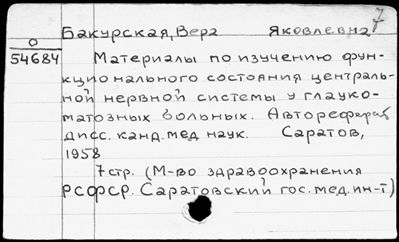 7
Бакурская, Вера Яковлевна
О
54684
Материалы по изучению фун-
кционального состояния централь-
ной нервной системы у глауко-
матозных больных. Автореферат
дисс. канд. мед наук. Саратов,
1958
7 стр. (М-во здравоохранения
РСФСР. Саратовский гос. мед. ин-т)